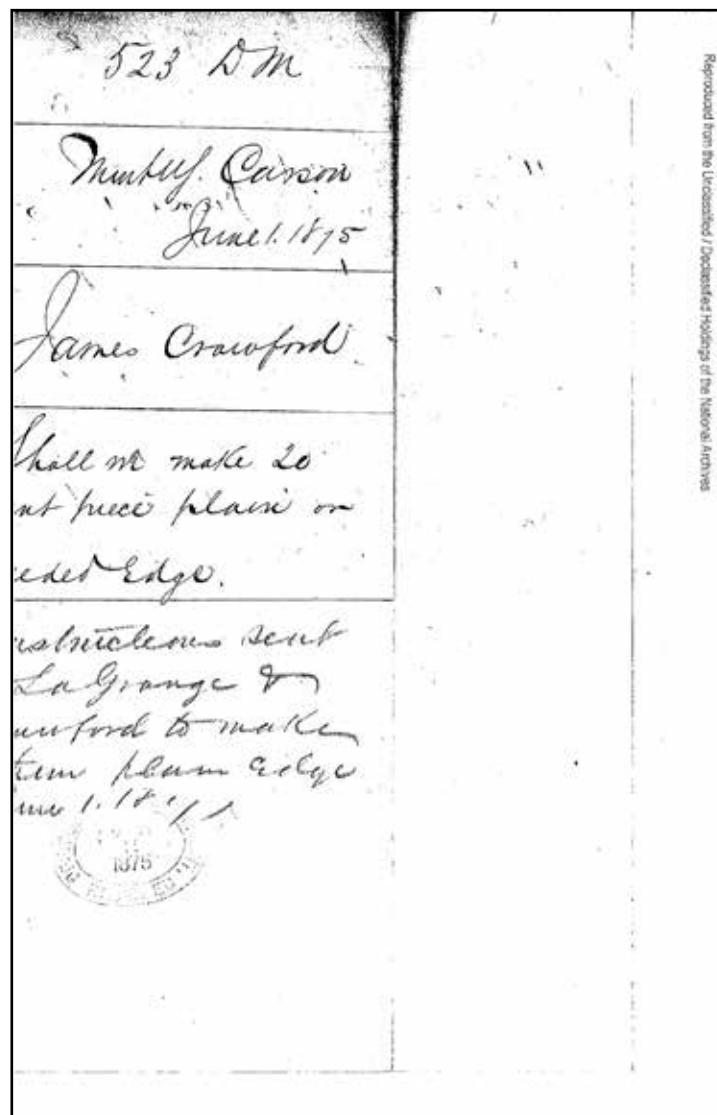 523 DM
Mint U.S. Carson
June 1. 1875
James Crawford
Shall we make 20
nt piece plain or
eeded Edge.
nstructions sent
LaGrange &
awford to make
tem plain edge
une 1. 18
1875
Reproduced from the Unclassified / Declassified Holdings of the National Archives